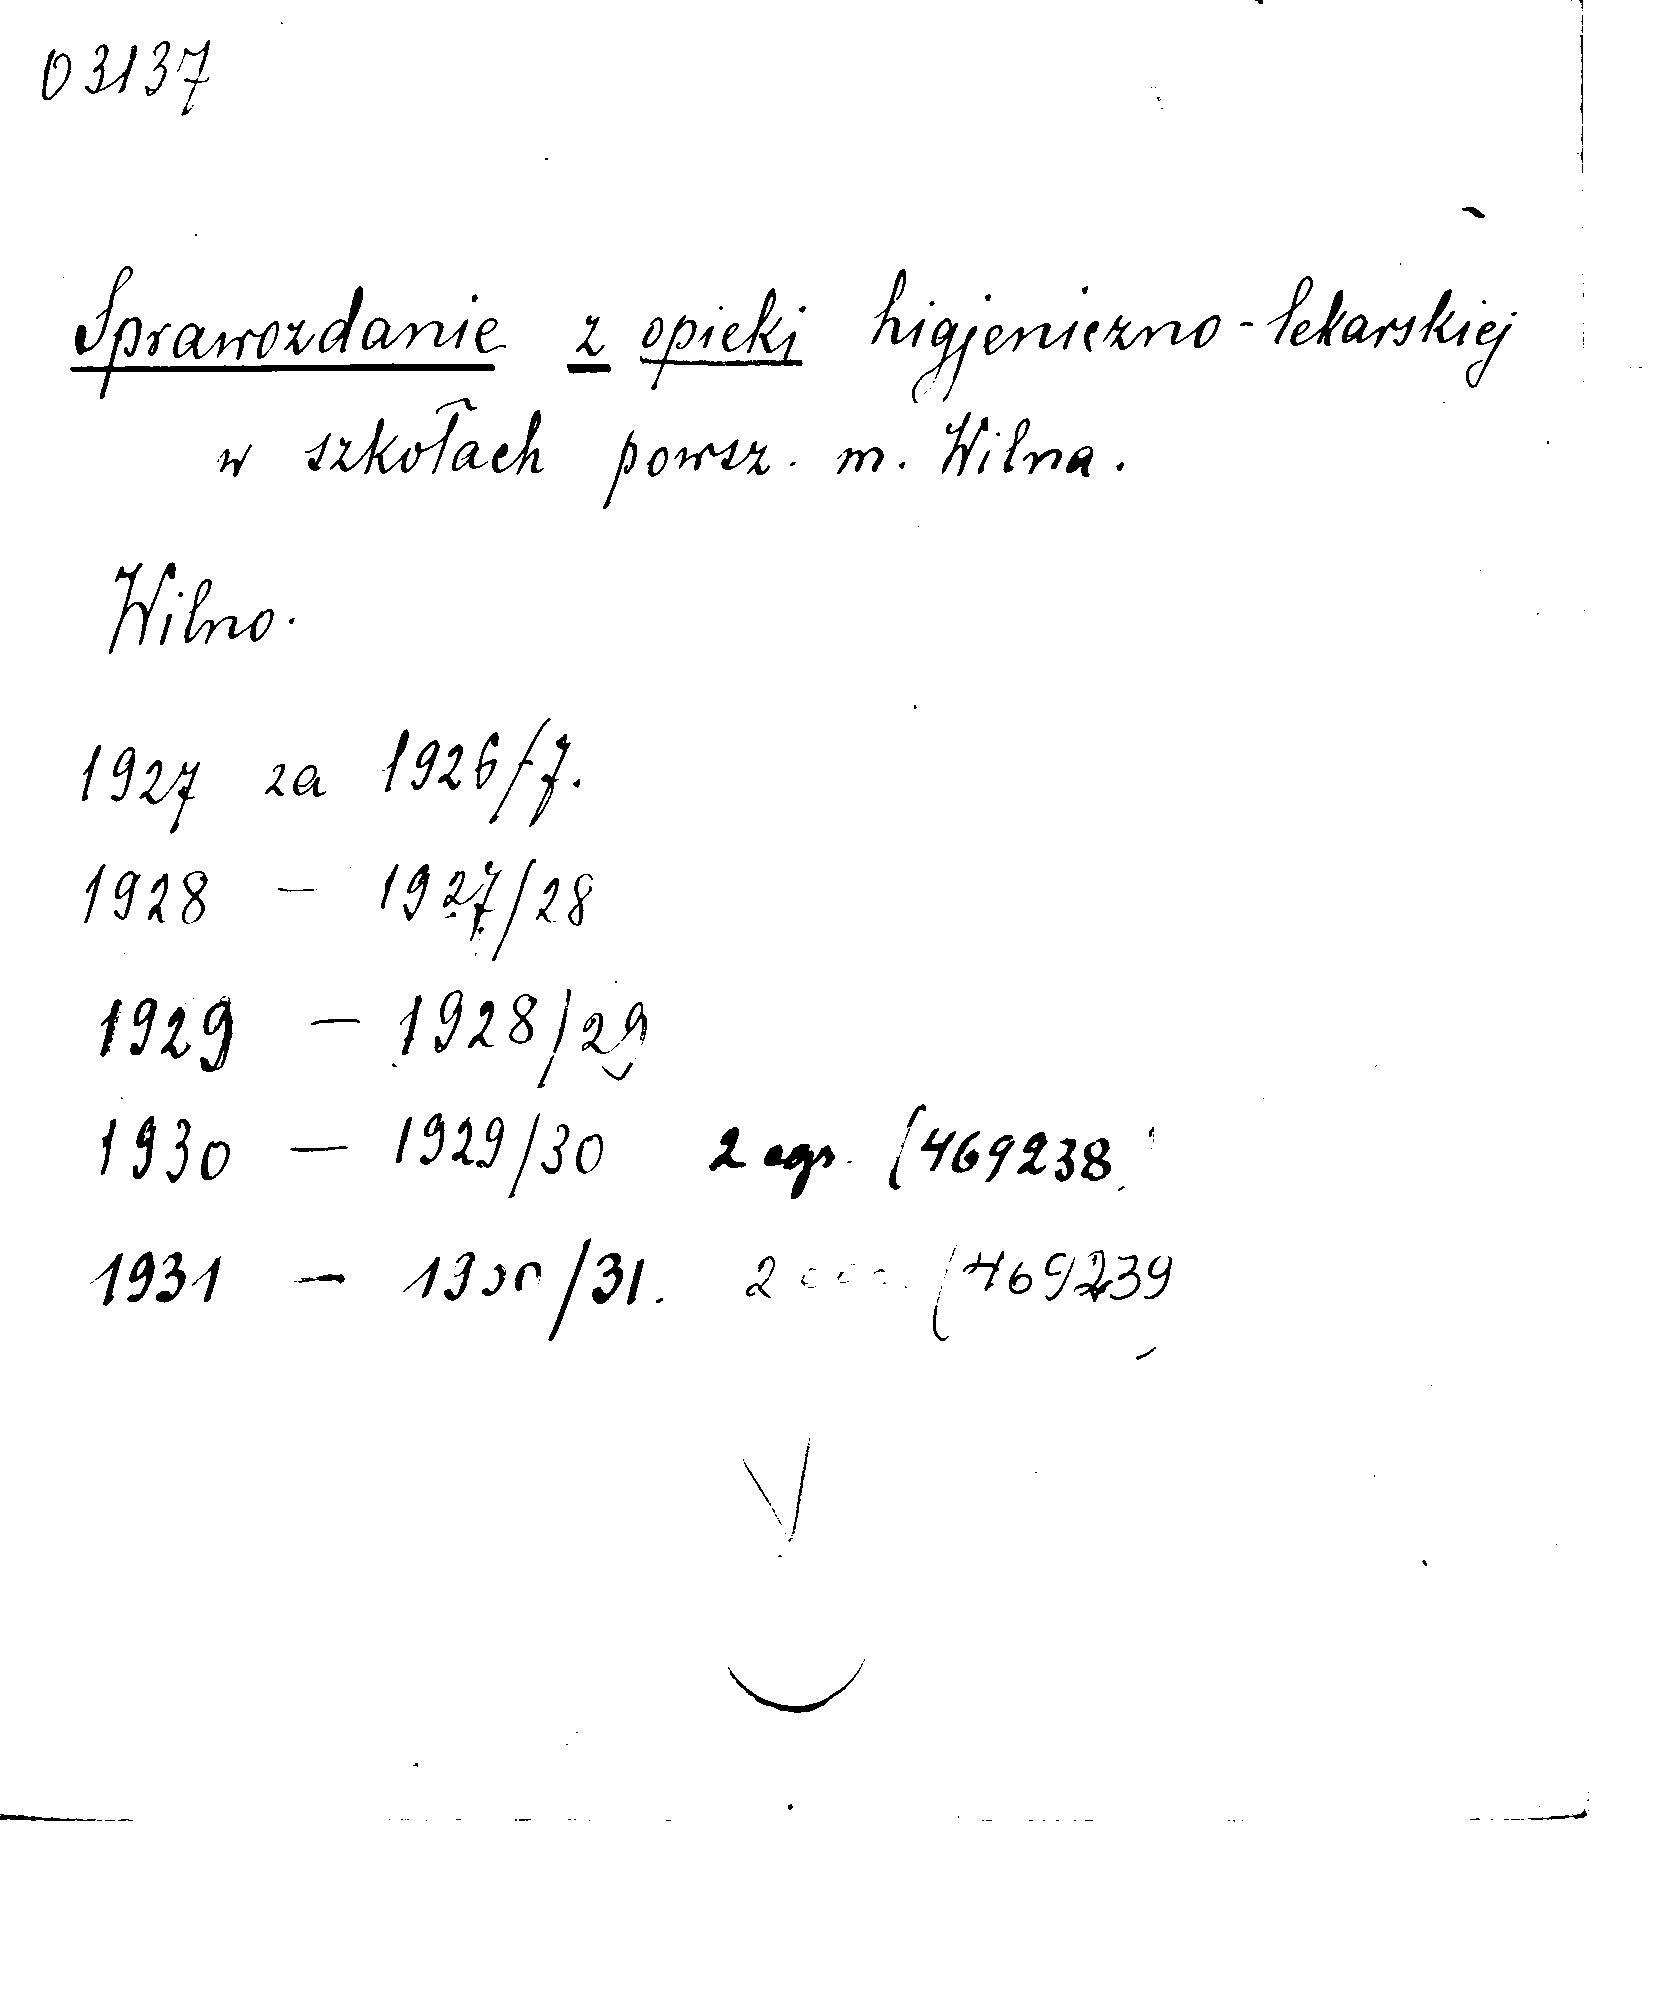 03137
Sprawozdanie z opieki higjeniczno-lekarskiej
w szkołach powsz. m. Wilna.
Wilno.
1927 za 1926/7.
1928 — 1927/28
1929 — 1928/29
1930 — 1929/30 2 egz. (469238
1931 — 1930/31. 2 (469239